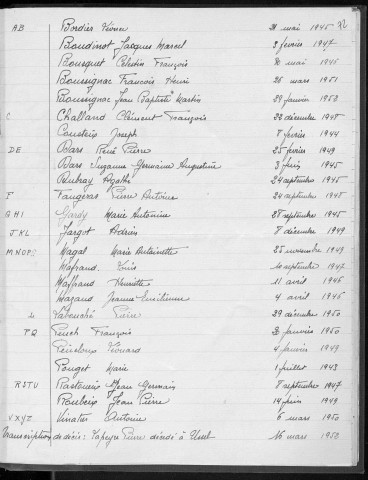 AB Bordier Kléber 31 mai 1945 72
Boudinot Jacques Marcel 3 février 1947
Bousquet Célestin François 8 mai 1945
Boussignac François Henri 26 mars 1951
Boussignac Jean Baptiste Martin 29 janvier 1950
C Challard Clément François 22 décembre 1948
Coustein Joseph 8 février 1944
DE Dars René Pierre 25 février 1949
Dars Suzanne Germaine Augustine 3 juin 1945
Dubray Agathe 24 septembre 1945
F Faugeras Pierre Antoine 24 septembre 1945
GHI Gardy Marie Antonine 28 septembre 1945
JKL Jargot Adrien 8 décembre 1949
MNOP Magal Marie Antoinette 25 novembre 1949
Maffrand Louis 10 septembre 1947
Maffrand Henriette 11 avril 1945
Mazaud Jeanne 4 avril 1945
L Labouché Pierre 29 décembre 1950
PQ Peuch François 2 janvier 1950
Édouard 4 janvier 1949
Pouget Marie 1 juillet 1943
RSTU Jean Germain 8 septembre 1947
Roubeix Jean Pierre 14 juin 1949
VXYZ Vinatier Antoine 6 mars 1950
Transcription de décès : Lapeyre Pierre décédé à Ussel 16 mars 1950